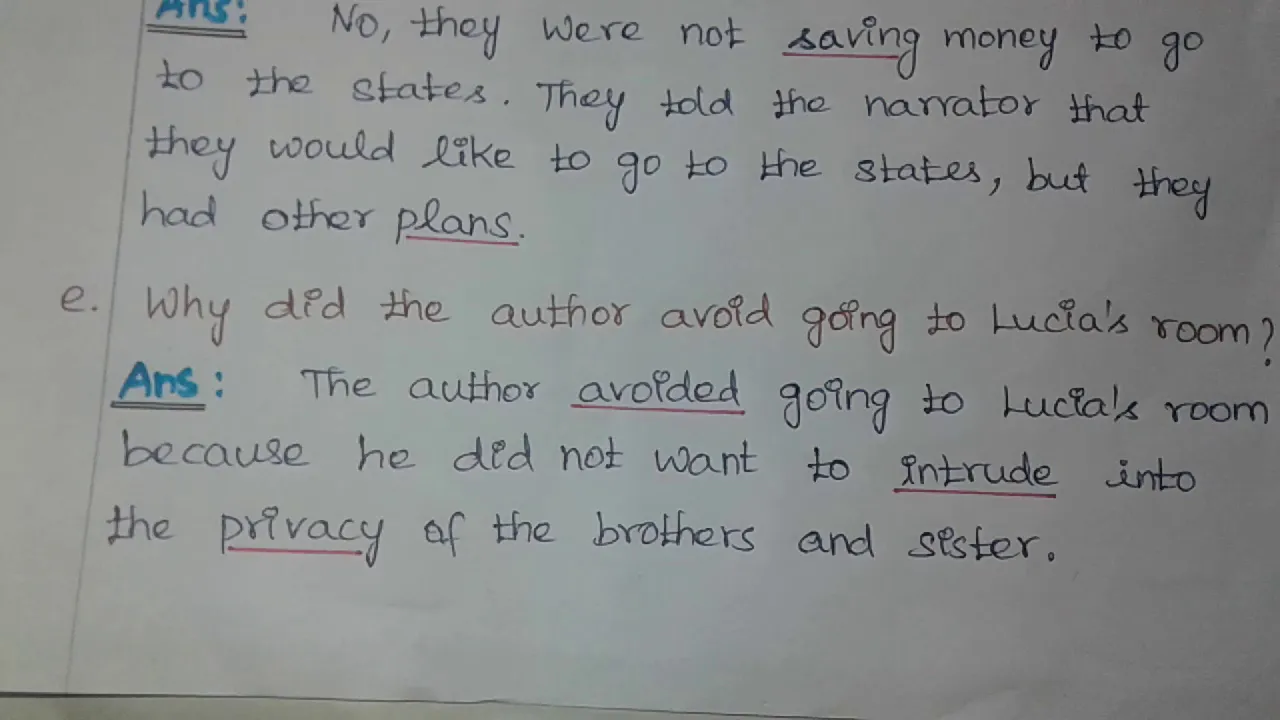 Ans: No, they were not saving money to go
to the states. They told the narrator that
they would like to go to the states, but they
had other plans.
e. Why did the author avoid going to Lucia's room?
Ans: The author avoided going to Lucia's room
because he did not want to intrude into
the privacy of the brothers and sister.